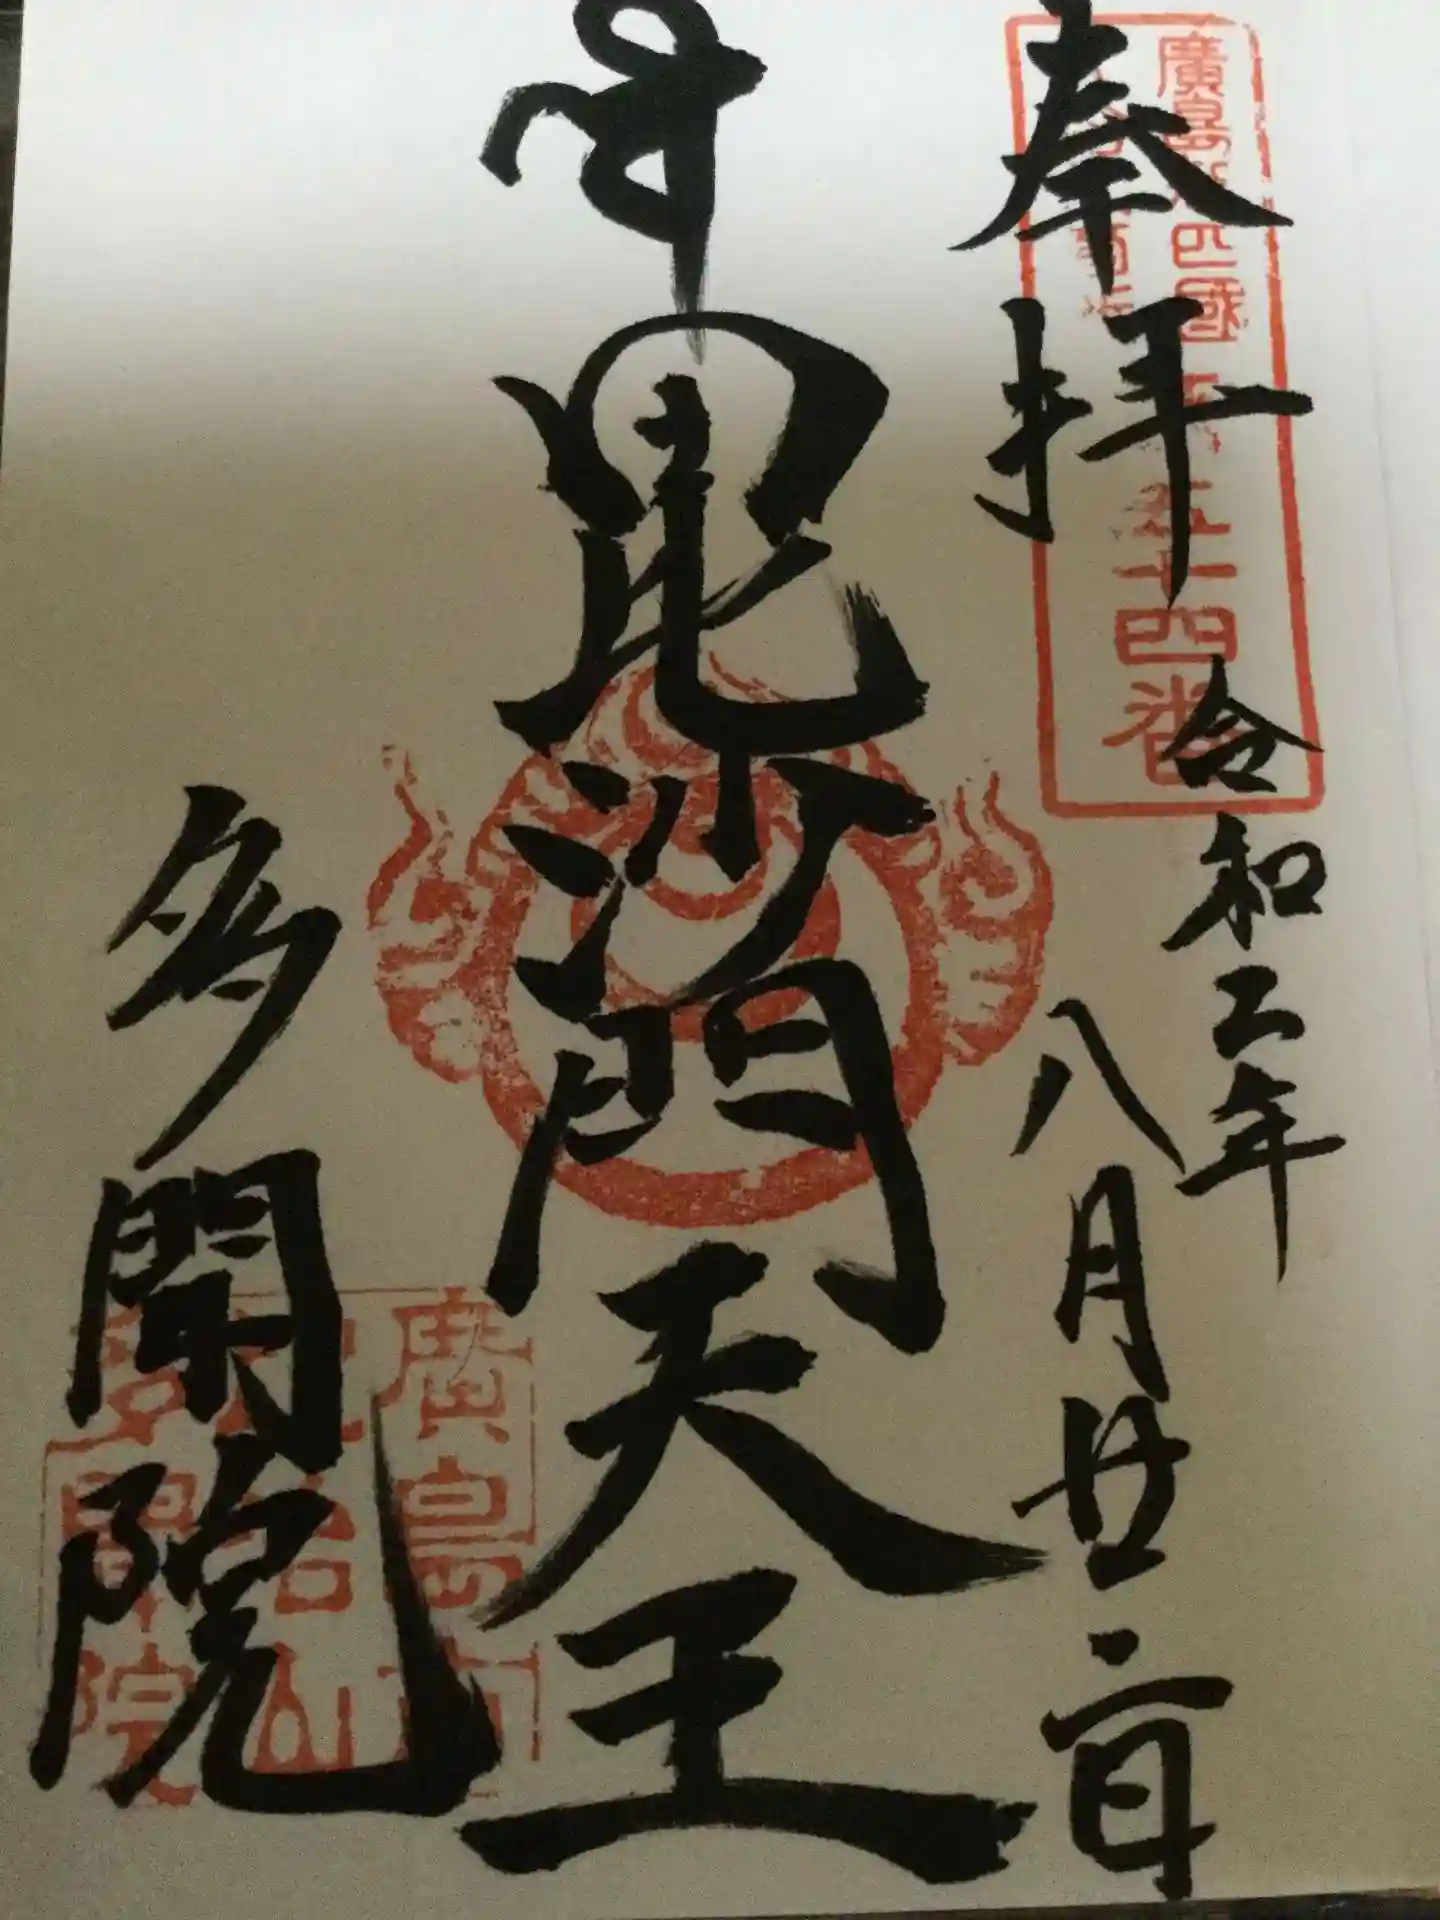 奉拝
令和二年
八月廿二日
毘沙門天王
多聞院
廣島新四國
五十四番
廣島市
比治山
多聞院